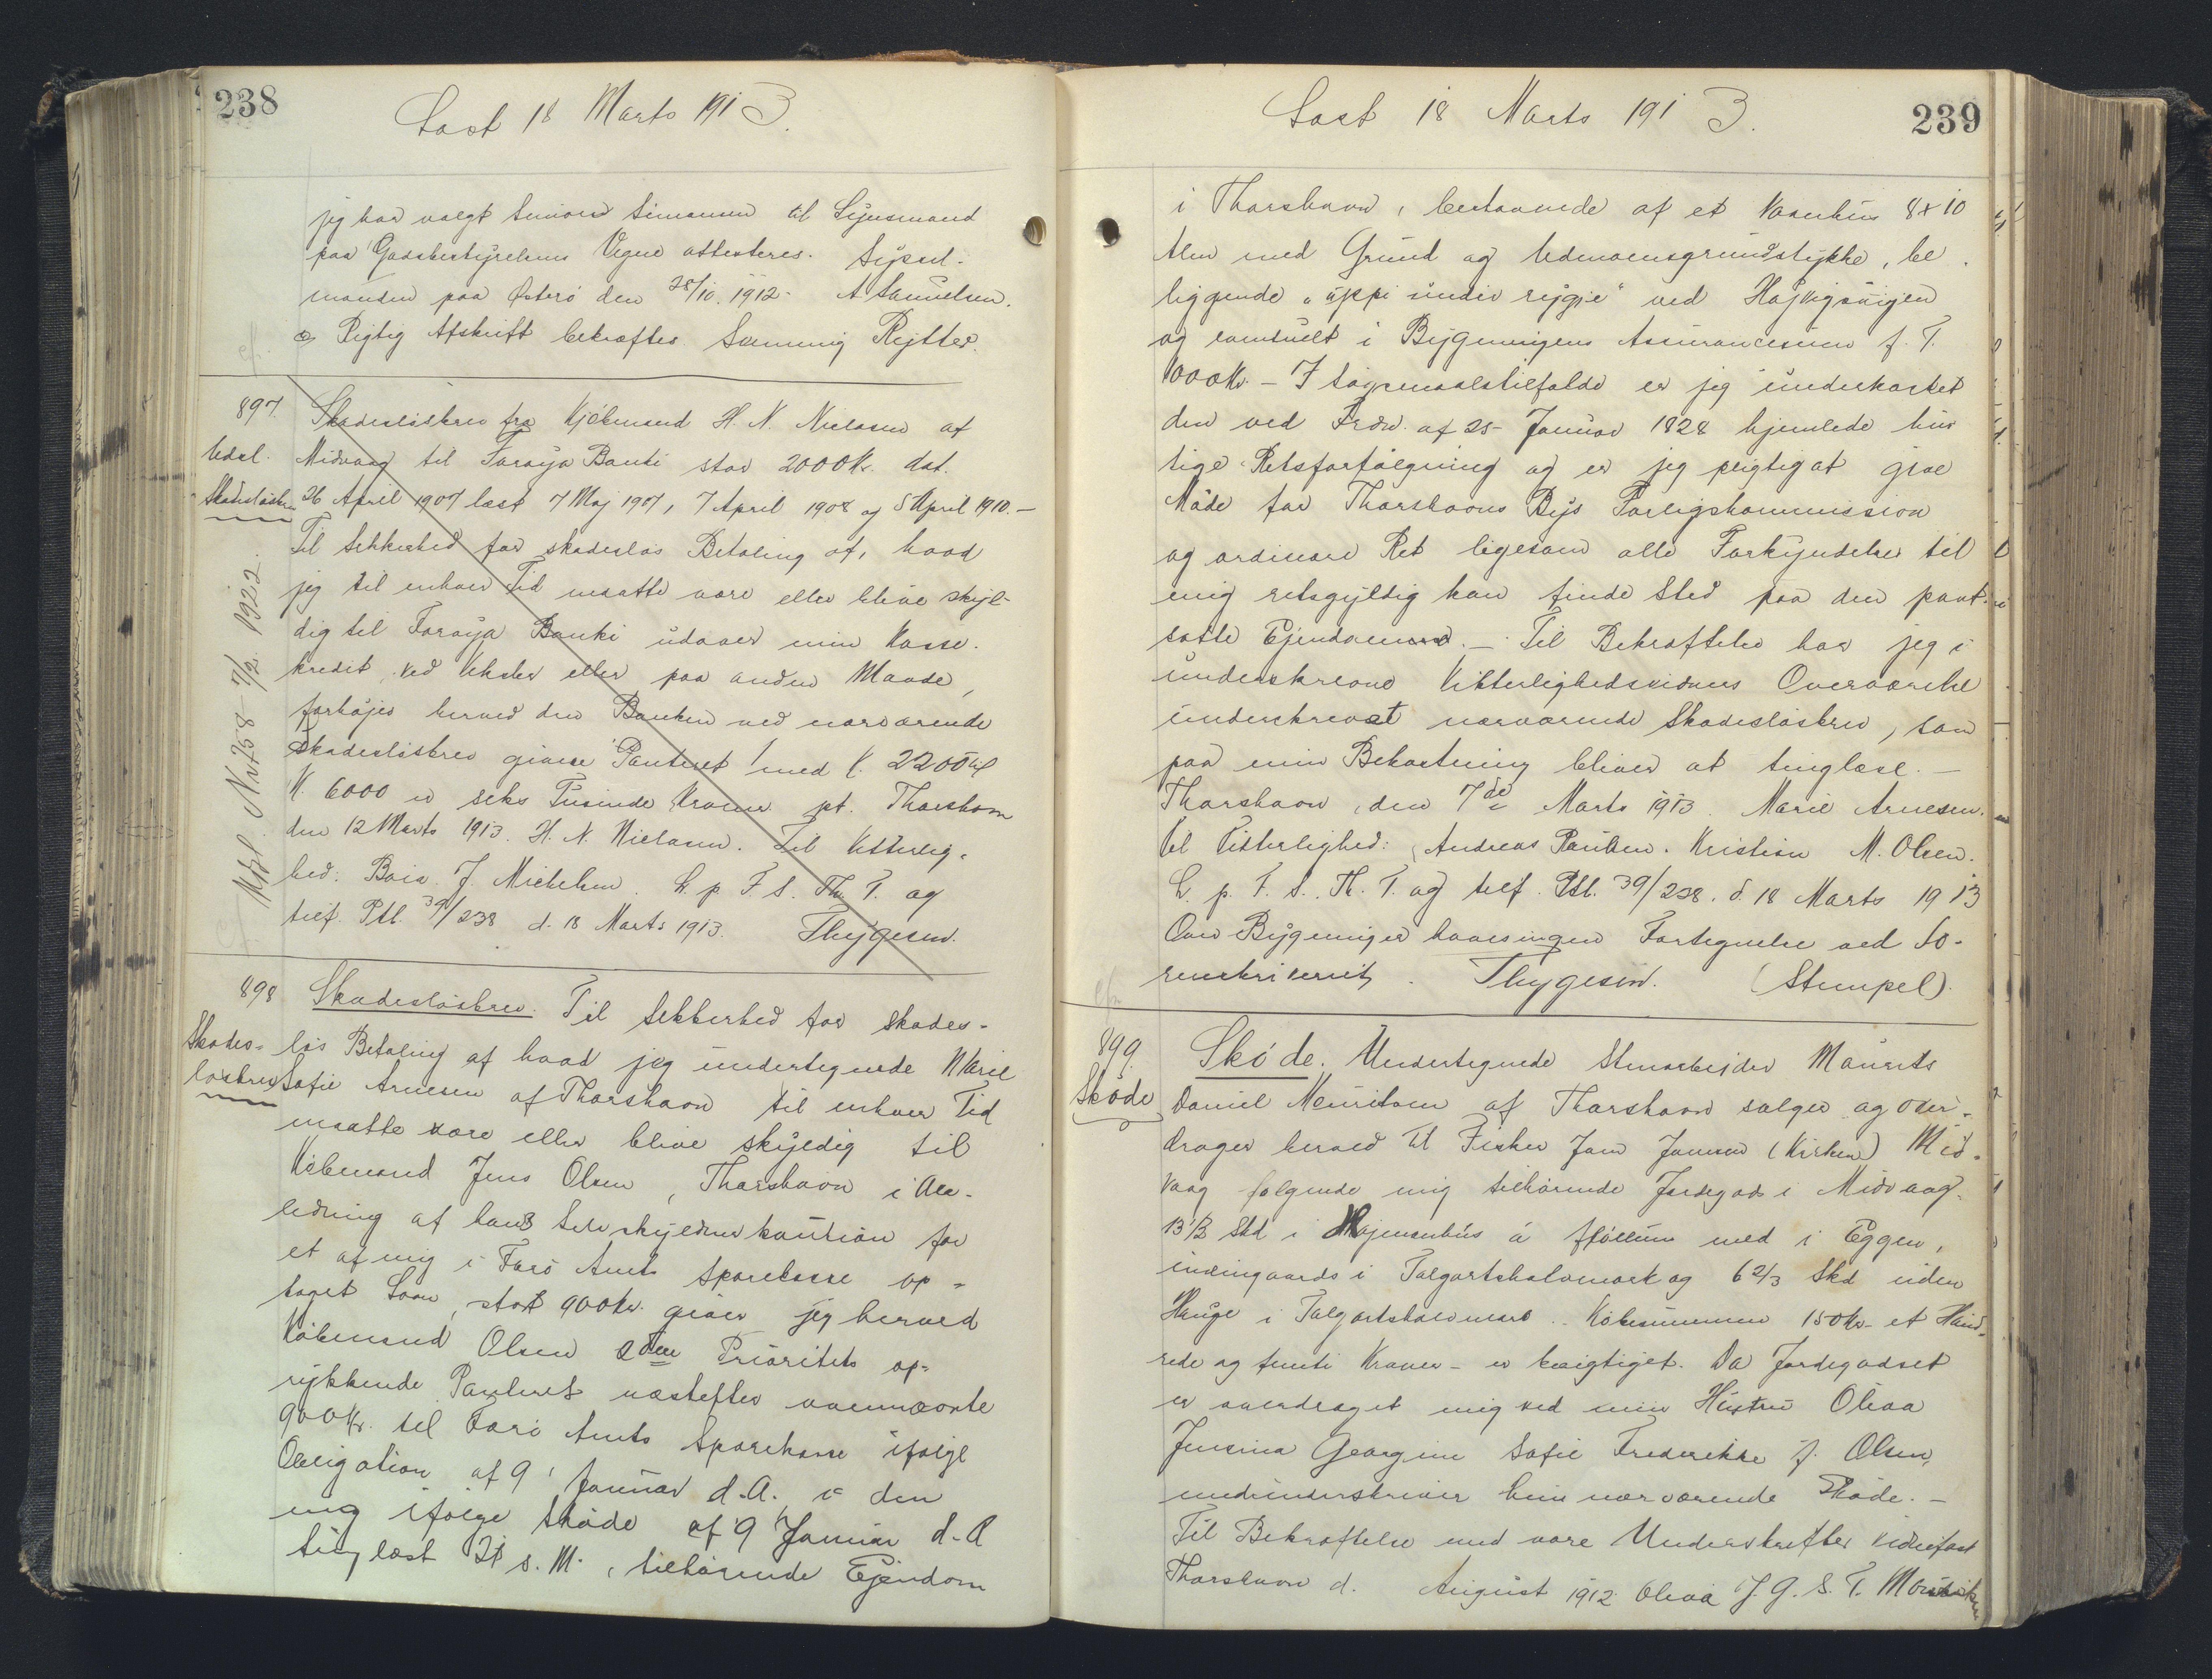 238
Læst 18 Marts 1913.
jeg har valgt Simon Simonsen til Synsmand
paa Godsbestyrelsens Vegne attesteres. Syssel-
manden paa Østerø den 28/10. 1912. A Samuelsen.
Rigtig Afskrift bekræftes Samning Rytter.
897.
Skadesløsbrev fra Kjøbmand H. N. Nielsen af
Midvaag til Føroya Banki stor 2000 Kr. dat.
Skadesløsbrev
26 April 1907 læst 7 Maj 1907, 7 April 1908 og 5 April 1910.—
Til Sikkerhed for skadesløs Betaling af, hvad
jeg til enhver Tid maatte være eller blive skyl-
dig til Føroya Banki udover min Kasse-
kredit, ved Veksler eller paa anden Maade,
forhøjes herved den Banken ved nærværende
Skadesløsbrev givne Panteret med K. 2200 til
K. 6000 er seks Tusinde Kroner pt. Thorshavn
den 12 Marts 1913. H. N. Nielsen. Til Vitterlig-
hed: J. Michelsen. L. p. F. S. Th. T. og
tilf. Ptl. 39/238 d. 18 Marts 1913. Thygesen.
7/2. 1922.
898
Skadesløsbrev. Til Sikkerhed for skades-
Skades-
løsbrev
løs Betaling af hvad jeg undertegnede Marie
Sofie Arnesen af Thorshavn til enhver Tid
maatte være eller blive skyldig til
Købmand Jens Olsen, Thorshavn i An-
ledning af hans Selvskyldnerkaution for
et af mig i Færø Amts Sparekasse op-
taget Laan, stort 900 Kr. giver jeg herved
Købmand Olsen 2den Prioritets op-
rykkende Panteret næstefter ovennævnte
900 Kr. til Færø Amts Sparekasse ifølge
Obligation af 9 Januar d. A. i den
mig ifølge Skøde af 9 Januar d. A
tinglæst s. M. tilhørende Ejendom
239
Læst 18 Marts 1913.
i Thorshavn, bestaaende af et Vaanhus 8 x 10
Alen med Grund og Udmarksgrundstykke, be-
liggende „uppi undir ryggie“ ved Højvigsvejen
og eventuelt i Bygningens Assurancesum f. T.
1000 Kr. — I Søgsmaalstilfælde er jeg underkastet
den ved Frdn. af 25 Januar 1828 hjemlede hur-
tige Retsforfølgning og er jeg pligtig at give
Møde for Thorshavns Bys Forligskommission
og ordinære Ret ligesom alle Forkyndelser til
mig retsgyldig kan finde Sted paa den pant-
satte Ejendom. — Til Bekræftelse har jeg i
underskrevne Vitterlighedsvidners Overværelse
underskrevet nærværende Skadesløsbrev, som
paa min Bekostning bliver at tinglæse. —
Thorshavn, den 7de Marts 1913. Marie Arnesen.
Til Vitterlighed: Andreas Poulsen. Kristian M. Olsen.
L. p. F. S. Th. T. og tilf. Ptl. 39/238. d. 18 Marts 1913
Over Bygninger haves ingen Fortegnelse ved So-
renskriveriet. Thygesen. (Stempel).
899.
Skøde
Skøde. Undertegnede Stenarbejder Maurits
Daniel Mouritsen af Thorshavn sælger og over-
drager herved til Fisker Jens Jensen (Kirken) Mid-
vaag følgende mig tilhørende Jordegods i Midvaag
13 1/3 Skd i Højgaardshus á fjøllum med i Eggen,
indengaards i Talgartshalvmark og 6 2/3 Skd uden
Hauge i Talgartshalvmark. Købesummen 150 Kr. et Hund-
rede og femti Kroner — er berigtiget. Da Jordegodset
er overdraget mig ved min Hustru Oliva
Jensina Georgine Sofie Frederikke f. Olsen,
medunderskriver hun nærværende Skøde. —
Til Bekræftelse med vore Underskrifter vidnefast
Thorshavn d. August 1912 Oliva J. G. S. F. Mouritsen